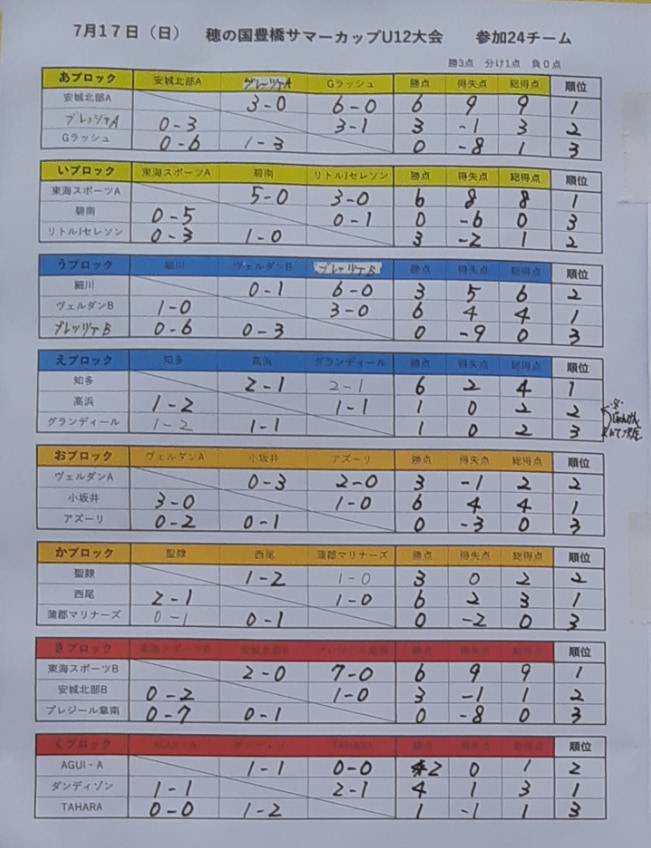 7月17日（日） 穂の国豊橋サマーカップU12大会 参加24チーム
勝3点 分け1点 負0点
あブロック 安城北部A ブレッツァA Gラッシュ 勝点 得失点 総得点 順位
安城北部A 3-0 6-0 6 9 9 1
ブレッツァA 0-3 3-1 3 -1 3 2
Gラッシュ 0-6 1-3 0 -8 1 3
いブロック 東海スポーツA 碧南 リトルJセレソン 勝点 得失点 総得点 順位
東海スポーツA 5-0 3-0 6 8 8 1
碧南 0-5 0-1 0 -6 0 3
リトルJセレソン 0-3 1-0 3 -2 1 2
うブロック 細川 ヴェルダンB ブレッツァB 勝点 得失点 総得点 順位
細川 0-1 6-0 3 5 6 2
ヴェルダンB 1-0 3-0 6 4 4 1
ブレッツァB 0-6 0-3 0 -9 0 3
えブロック 知多 高浜 グランディール 勝点 得失点 総得点 順位
知多 2-1 2-1 6 2 4 1
高浜 1-2 1-1 1 0 2 2
グランディール 1-2 1-1 1 0 2 3
おブロック ヴェルダンA 小坂井 アズーリ 勝点 得失点 総得点 順位
ヴェルダンA 0-3 2-0 3 -1 2 2
小坂井 3-0 1-0 6 4 4 1
アズーリ 0-2 0-1 0 -3 0 3
かブロック 聖隷 西尾 蒲郡マリナーズ 勝点 得失点 総得点 順位
聖隷 1-2 1-0 3 0 2 2
西尾 2-1 1-0 6 2 3 1
蒲郡マリナーズ 0-1 0-1 0 -2 0 3
きブロック 東海スポーツB 安城北部B プレジール章南 勝点 得失点 総得点 順位
東海スポーツB 2-0 7-0 6 9 9 1
安城北部B 0-2 1-0 3 -1 1 2
プレジール章南 0-7 0-1 0 -8 0 3
くブロック AGUI・A ダンディゾン TAHARA 勝点 得失点 総得点 順位
AGUI・A 1-1 0-0 2 0 1 2
ダンディゾン 1-1 2-1 4 1 3 1
TAHARA 0-0 1-2 1 -1 1 3